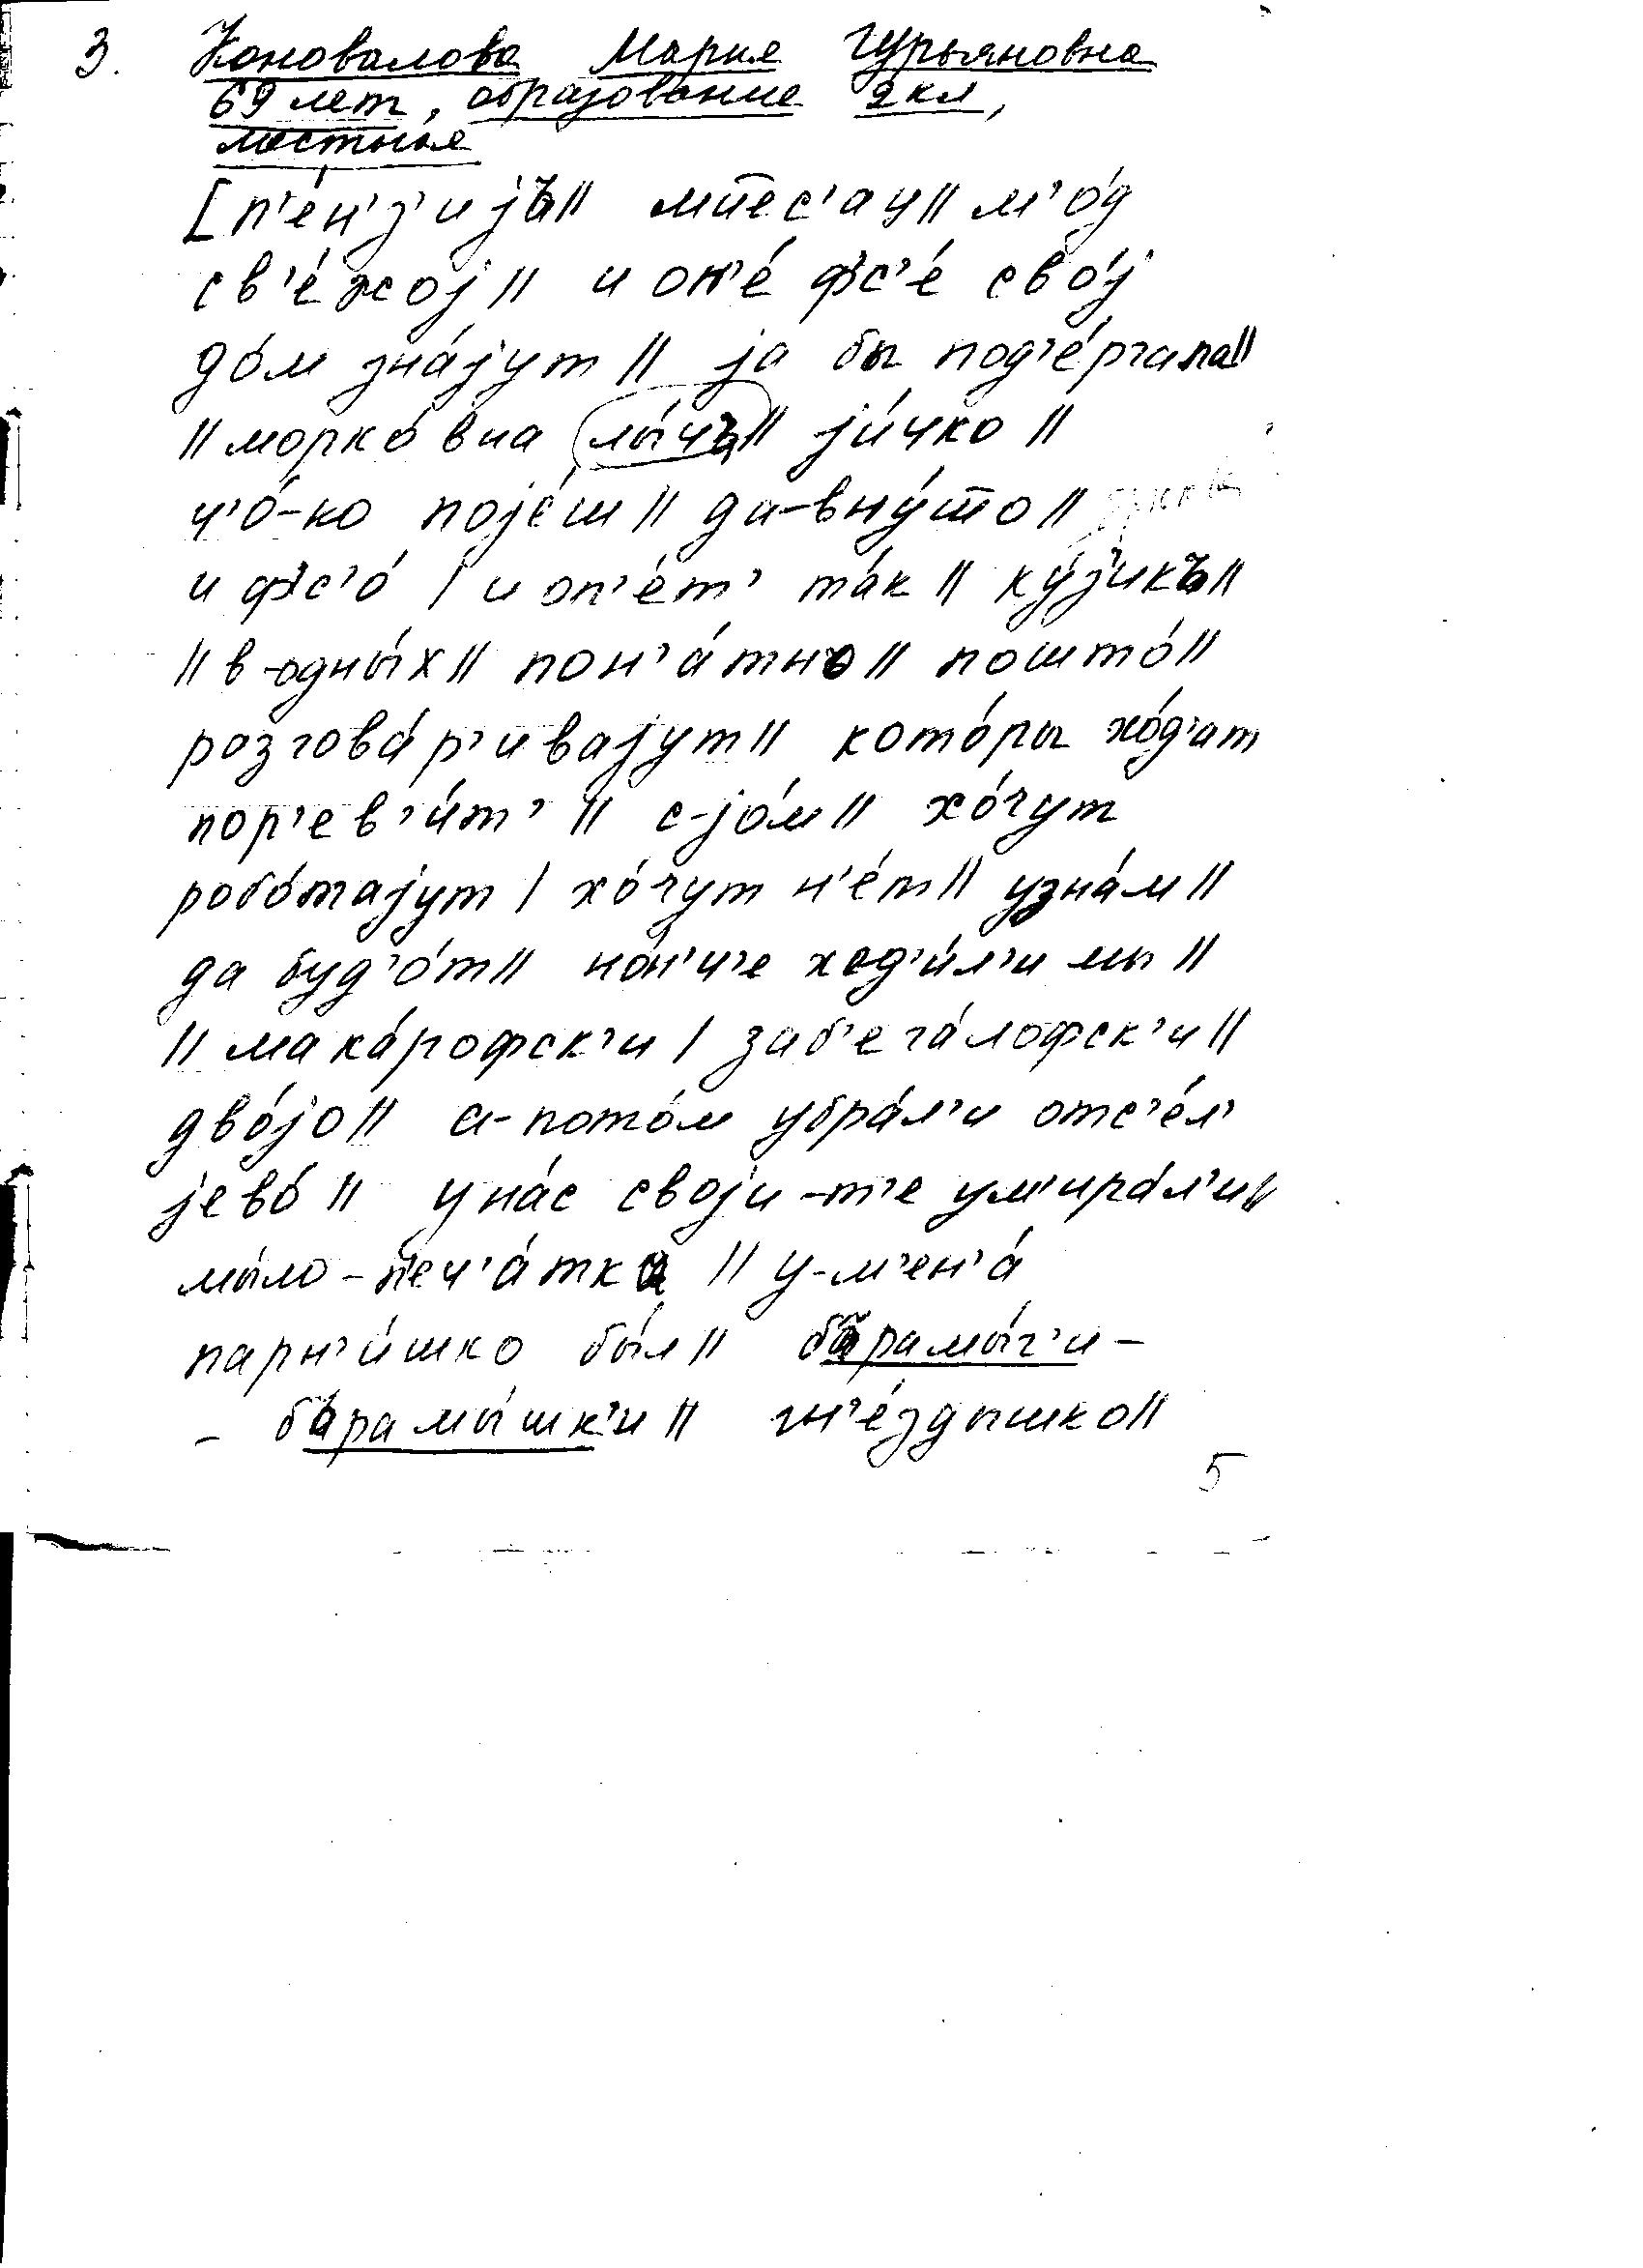 3. Коновалова Мария Гурьяновна
69 лет, образование 2 кл,
местная
[п'е́н'з'ијъ|| м'ес'ац|| м'о́д
св'е́жој|| и он'е́ фс'е́ сво́ј
до́м зна́јут || ја бы под'е́ргала||
|| морко́вна лы́чъ|| ји́чко ||
ч'о́-ко поје́ш || да-вну́то ||
и фс'о́ | и оп'е́т' та́к || ку́з'икъ||
|| в-одны́х|| пон'а́тно || пошто́||
розгова́р'ивајут|| кото́ры хо́д'ат
пор'ев'и́т' || с-јо́м || хо́чут
робо́тајут | хо́чут н'е́т|| узна́м ||
да буд'о́т|| но́н'ч'е ход'и́л'и мы ||
|| мака́рофск'и | заб'ега́лофск'и ||
дво́јо|| а-пото́м убра́л'и отс'е́л'
јево́ || у на́с своји-т'е ум'ира́л'и||
мы́ло-печ'а́тка || у-м'ен'а́
парн'и́шко бы́л|| бърамы́г'и-
- бърамы́шк'и || гн'е́здышко||
5